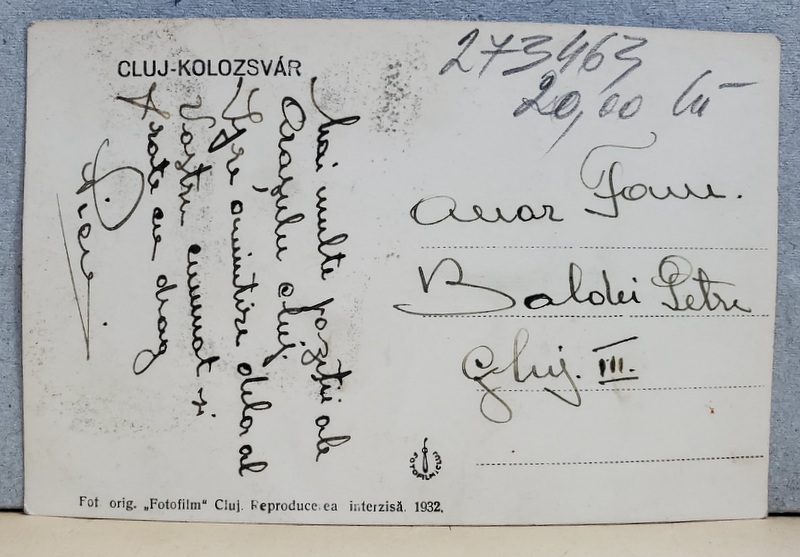 CLUJ-KOLOZSVÁR
273463
20,00 lei
Mai multe poziții ale
Orașului cluj.
Spre amintire dela al
Vostru cumnat și
frate cu drag
Fam.
Baldei Petre
Cluj. III.
FOTOFILM CLUJ
Fot. orig. „Fotofilm“ Cluj. Reproducerea interzisă. 1932.